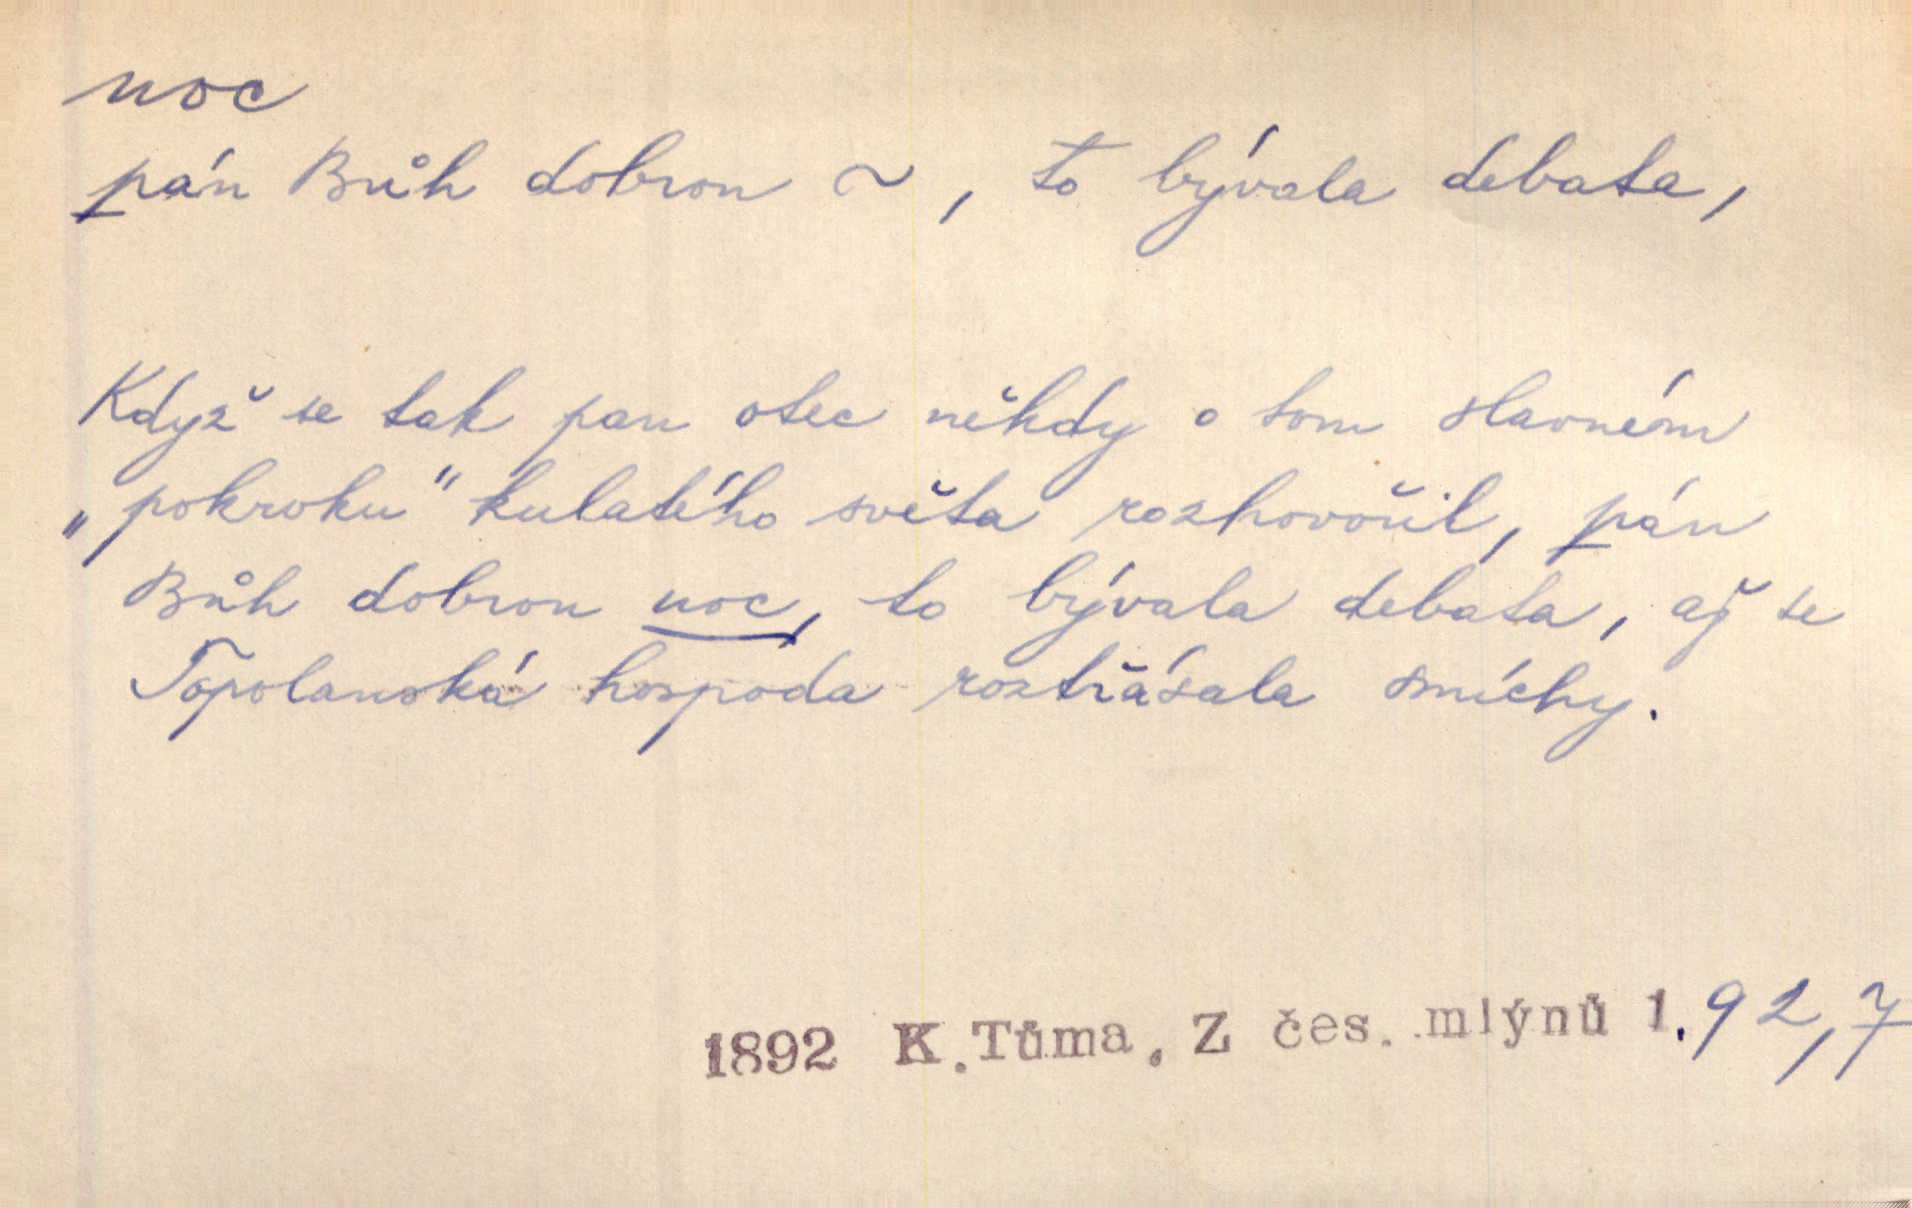 noc
pán Bůh dobrou ~, to bývala debata,
Když se tak pan otec někdy o tom slavném
„pokroku" kulatého světa rozhovořil, pán
Bůh dobrou noc, to bývala debata, až se
Topolanská hospoda roztřásala smíchy.
1892 K.Tůma. Z čes. mlýnů 1.92,7